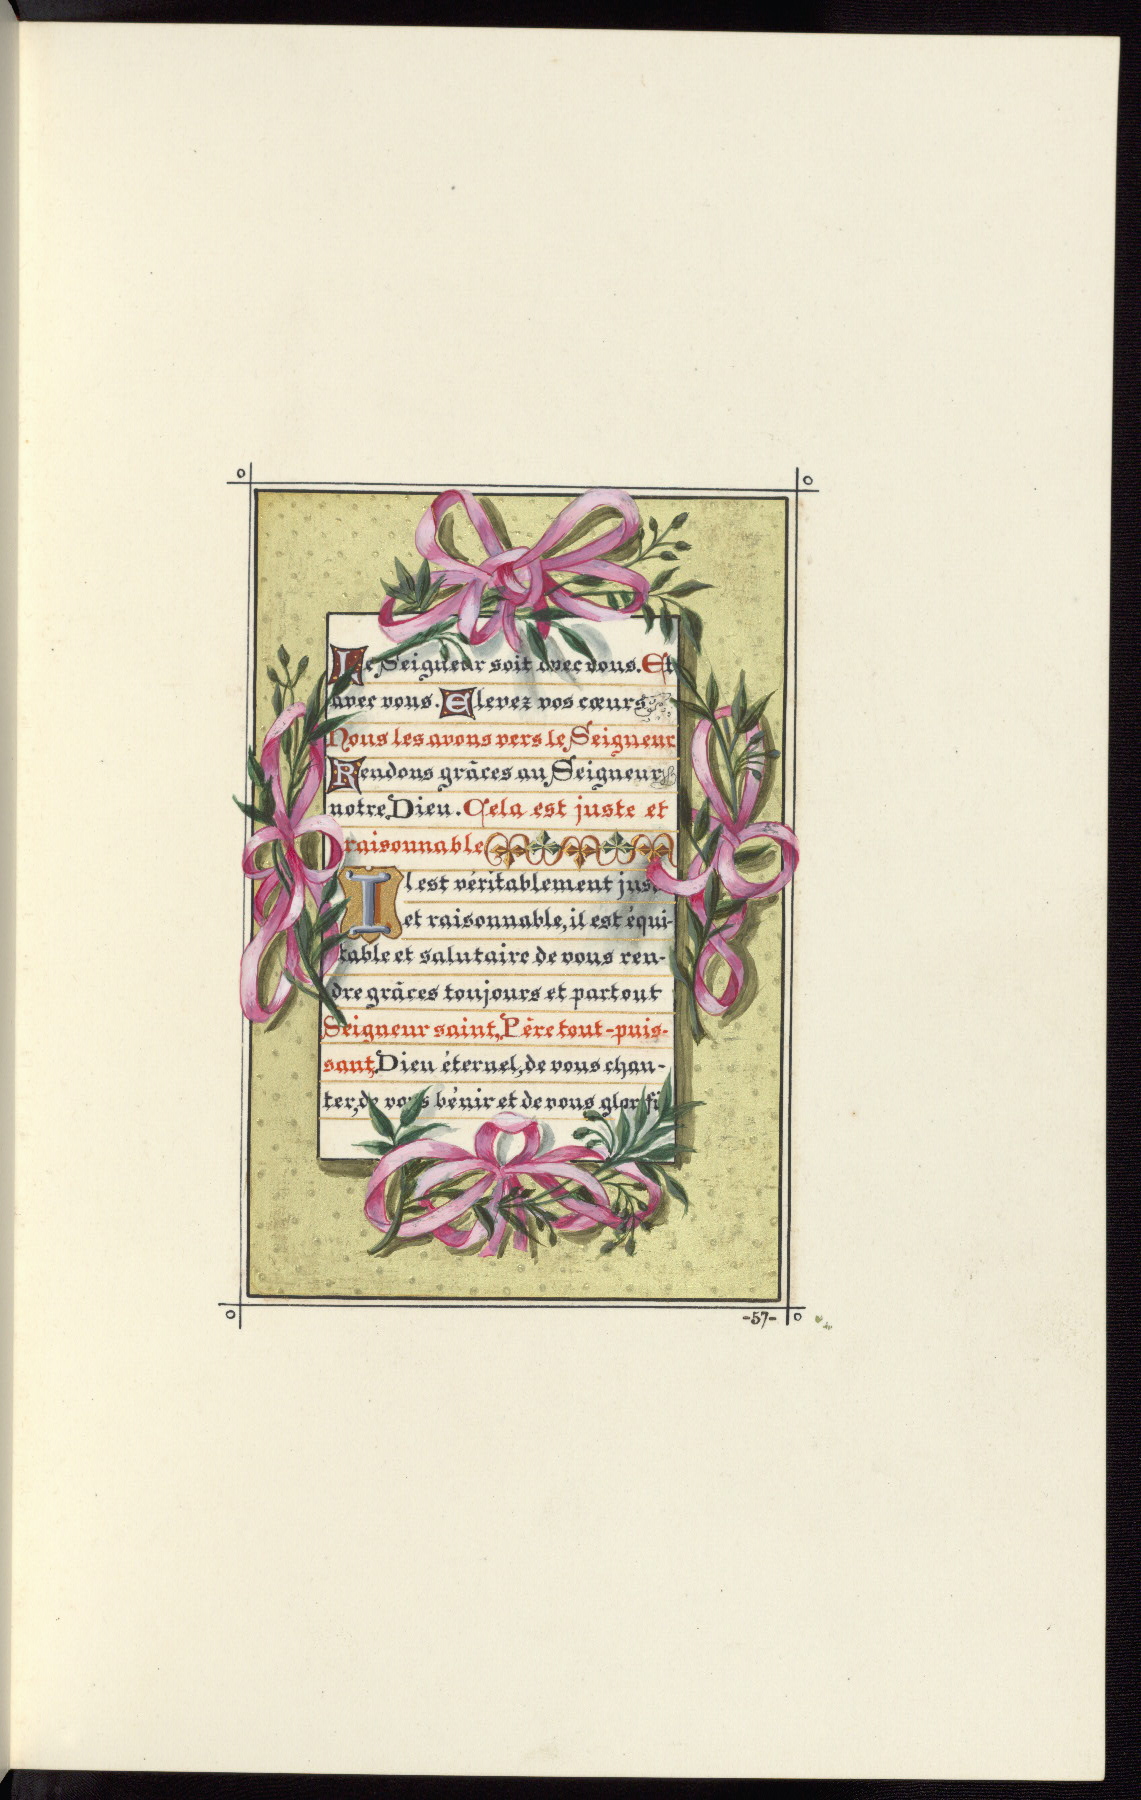 Le Seigneur soit avec vous. Et
avec vous. Elevez vos cœurs
Nous les avons vers le Seigneur
Rendons grâces au Seigneur
notre Dieu. Cela est juste et
raisonnable
Il est véritablement jus
et raisonnable, il est équi-
table et salutaire de vous ren-
dre grâces toujours et partout
Seigneur saint, Père tout-puis-
sant, Dieu éternel, de vous chan-
ter, de vous bénir et de vous glorifi
-57-